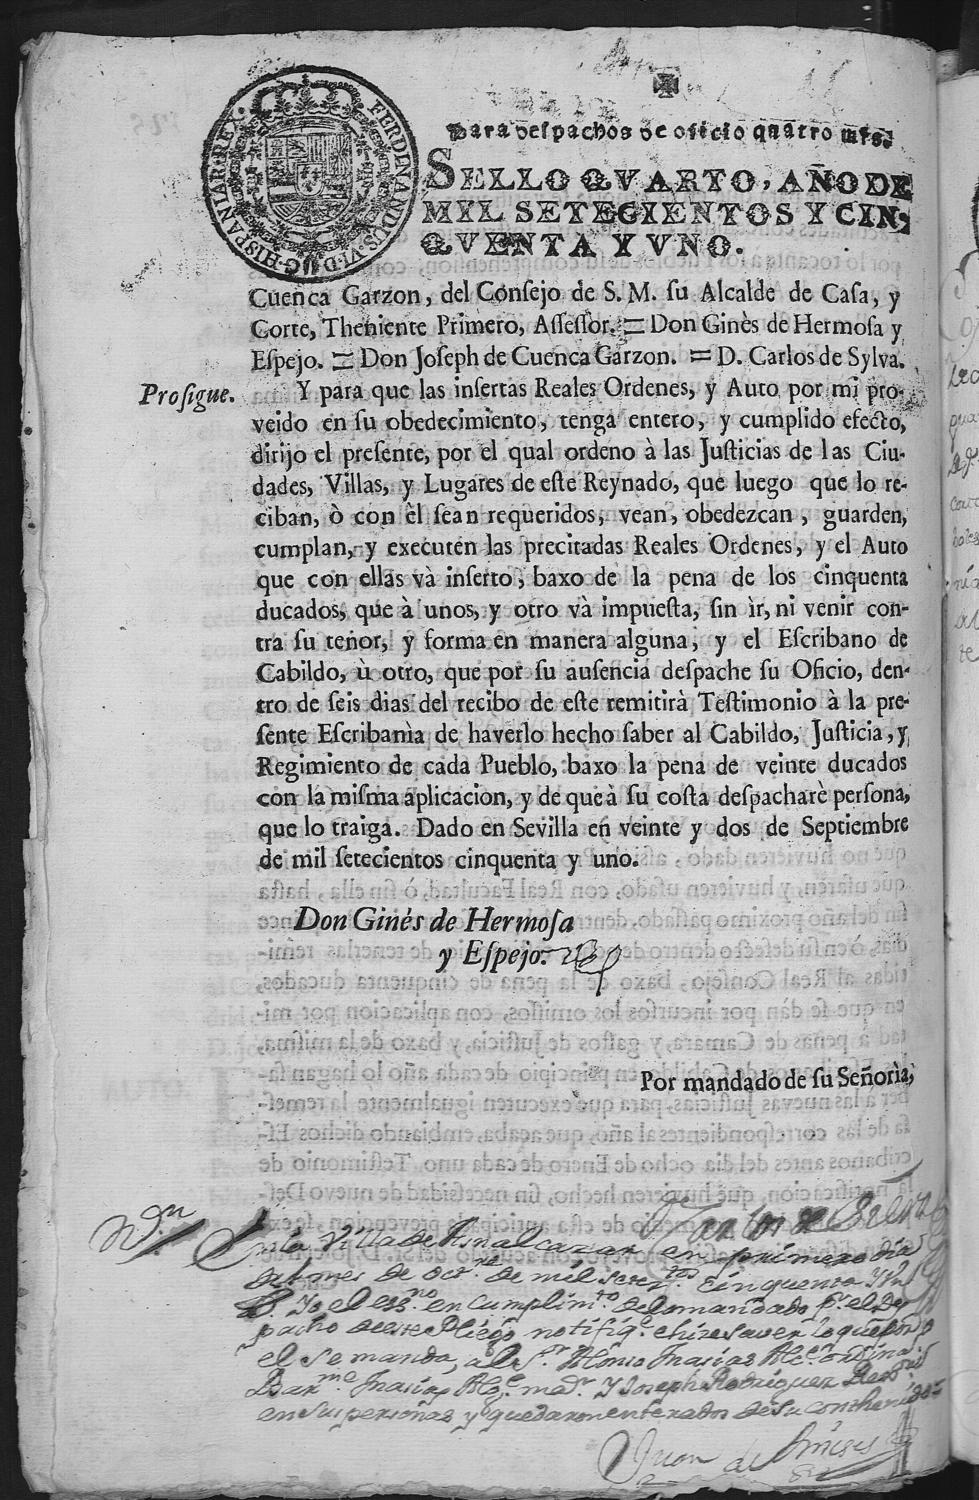 FERDINANDUS·VI·D·G·HISPANIAR·REX·
Para despachos de oficio quatro mrs.
SELLO QVARTO, AÑO DE
MIL SETECIENTOS Y CIN-
QVENTA Y VNO.
Cuenca Garzon, del Consejo de S. M. su Alcalde de Casa, y
Corte, Theniente Primero, Assessor. = Don Ginès de Hermosa y
Espejo. = Don Joseph de Cuenca Garzon. = D. Carlos de Sylva.
Prosigue. Y para que las insertas Reales Ordenes, y Auto por mi pro-
veido en su obedecimiento, tenga entero, y cumplido efecto,
dirijo el presente, por el qual ordeno à las Justicias de las Ciu-
dades, Villas, y Lugares de este Reynado, que luego que lo re-
ciban, ò con èl sean requeridos, vean, obedezcan, guarden,
cumplan, y executen las precitadas Reales Ordenes, y el Auto
que con ellas và inserto, baxo de la pena de los cinquenta
ducados, que à unos, y otro và impuesta, sin ir, ni venir con-
tra su tenor, y forma en manera alguna, y el Escribano de
Cabildo, ù otro, que por su ausencia despache su Oficio, den-
tro de seis dias del recibo de este remitirà Testimonio à la pre-
sente Escribanìa de haverlo hecho saber al Cabildo, Justicia, y
Regimiento de cada Pueblo, baxo la pena de veinte ducados
con la misma aplicacion, y de que à su costa despacharè persona,
que lo traiga. Dado en Sevilla en veinte y dos de Septiembre
de mil setecientos cinquenta y uno.
Don Ginés de Hermosa
y Espejo.
Por mandado de su Señorìa,
En la Villa de Aznalcazar en primero dia
del mes de octre de mil setectos Cinquenta y un
Yo el essno en cumplimto de lo mandado pr el Des
pacho de este Pliego notifiqe e hize saver lo que por
el se manda, a el Sr Alonso Inasias Alce ordina
Barme Inasias Alge mor Y Joseph Rodriguez
en sus personas y quedaron enterados de su conthenido
Juan de